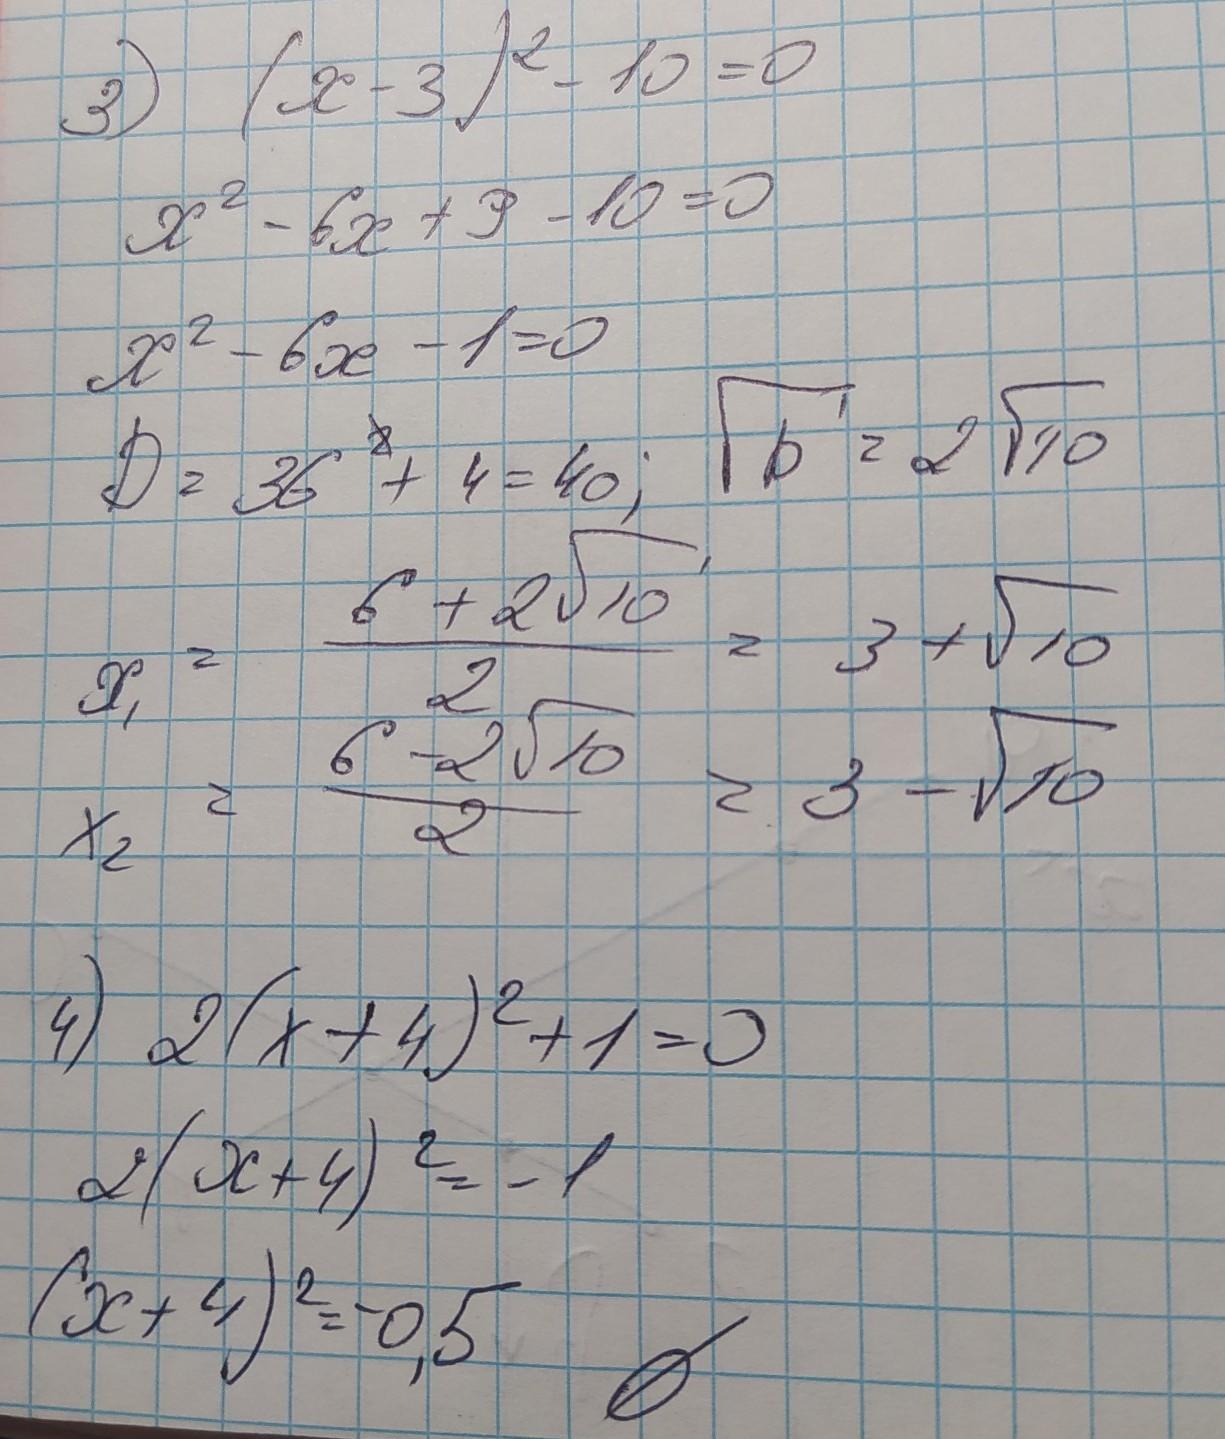 3) (x - 3)² - 10 = 0
x² - 6x + 9 - 10 = 0
x² - 6x - 1 = 0
D = 36 + 4 = 40; √D = 2√10
x₁ = (6 + 2√10)/2 = 3 + √10
x₂ = (6 - 2√10)/2 = 3 - √10
4) 2(x + 4)² + 1 = 0
2(x + 4)² = -1
(x + 4)² = -0,5 ∅